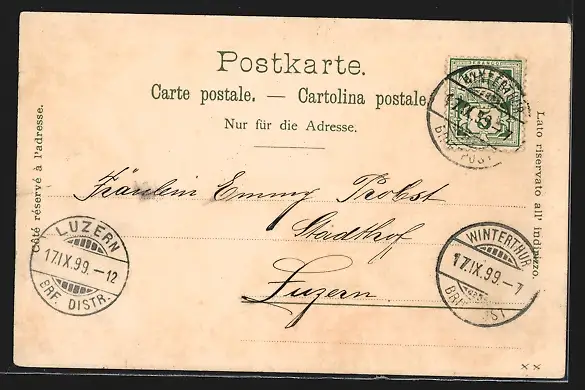 Postkarte.
Carte postale. — Cartolina postale.
Nur für die Adresse.
Côté réservé à l'adresse.
Lato riservato all' indirizzo.
WINTERTHUR
17.IX.99.-7
BRF. POST
Fräulein Emmy Probst
Stadthof
Luzern
LUZERN
17.IX.99.-12
BRF. DISTR.
WINTERTHUR
17.IX.99.-7
BRF. POST
x x